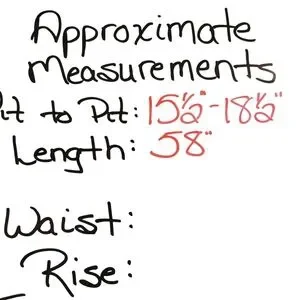 Approximate
Measurements
it to Pit: 15½"-18½"
Length: 58"
Waist:
Rise: